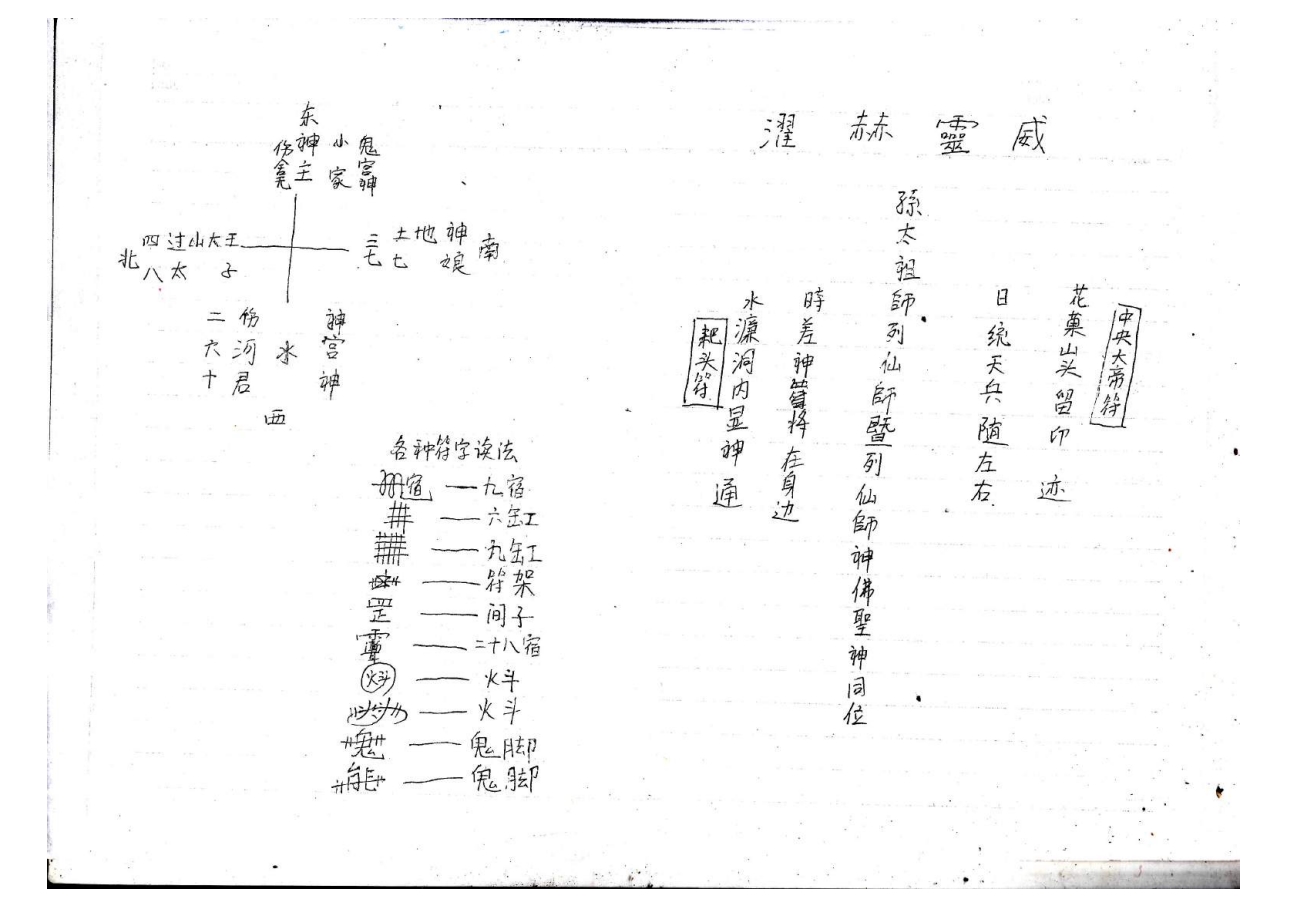 威靈赫濯
中央大帝符
花菓山头留印迹
日统天兵随左右
孫太祖師列仙師暨列仙師神佛聖神同位
時差神将在身边
水濂洞内显神通
耙头符
东
鬼宫神
小家
神主
伤禽
四过山大王
八太子
北
三土地神
七七娘
南
神宫神
水
伤河君
二六十
西
各种符字读法
九宿
六缸
九缸
符架
罡 间子
二十八宿
火斗
火斗
鬼脚
鬼脚